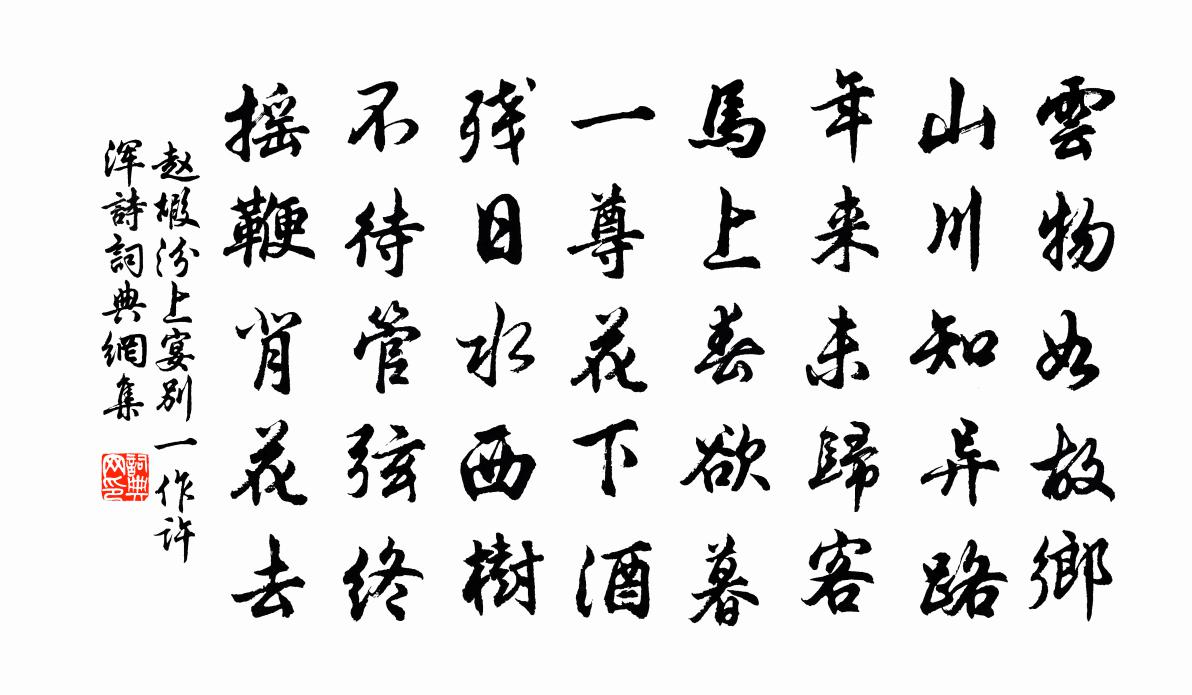 雲物如故鄉
山川知异路
年来未歸客
馬上春欲暮
一尊花下酒
残日水西樹
不待管弦终
摇鞭背花去
赵嘏汾上宴别一作許
浑詩詞典網集
詞典